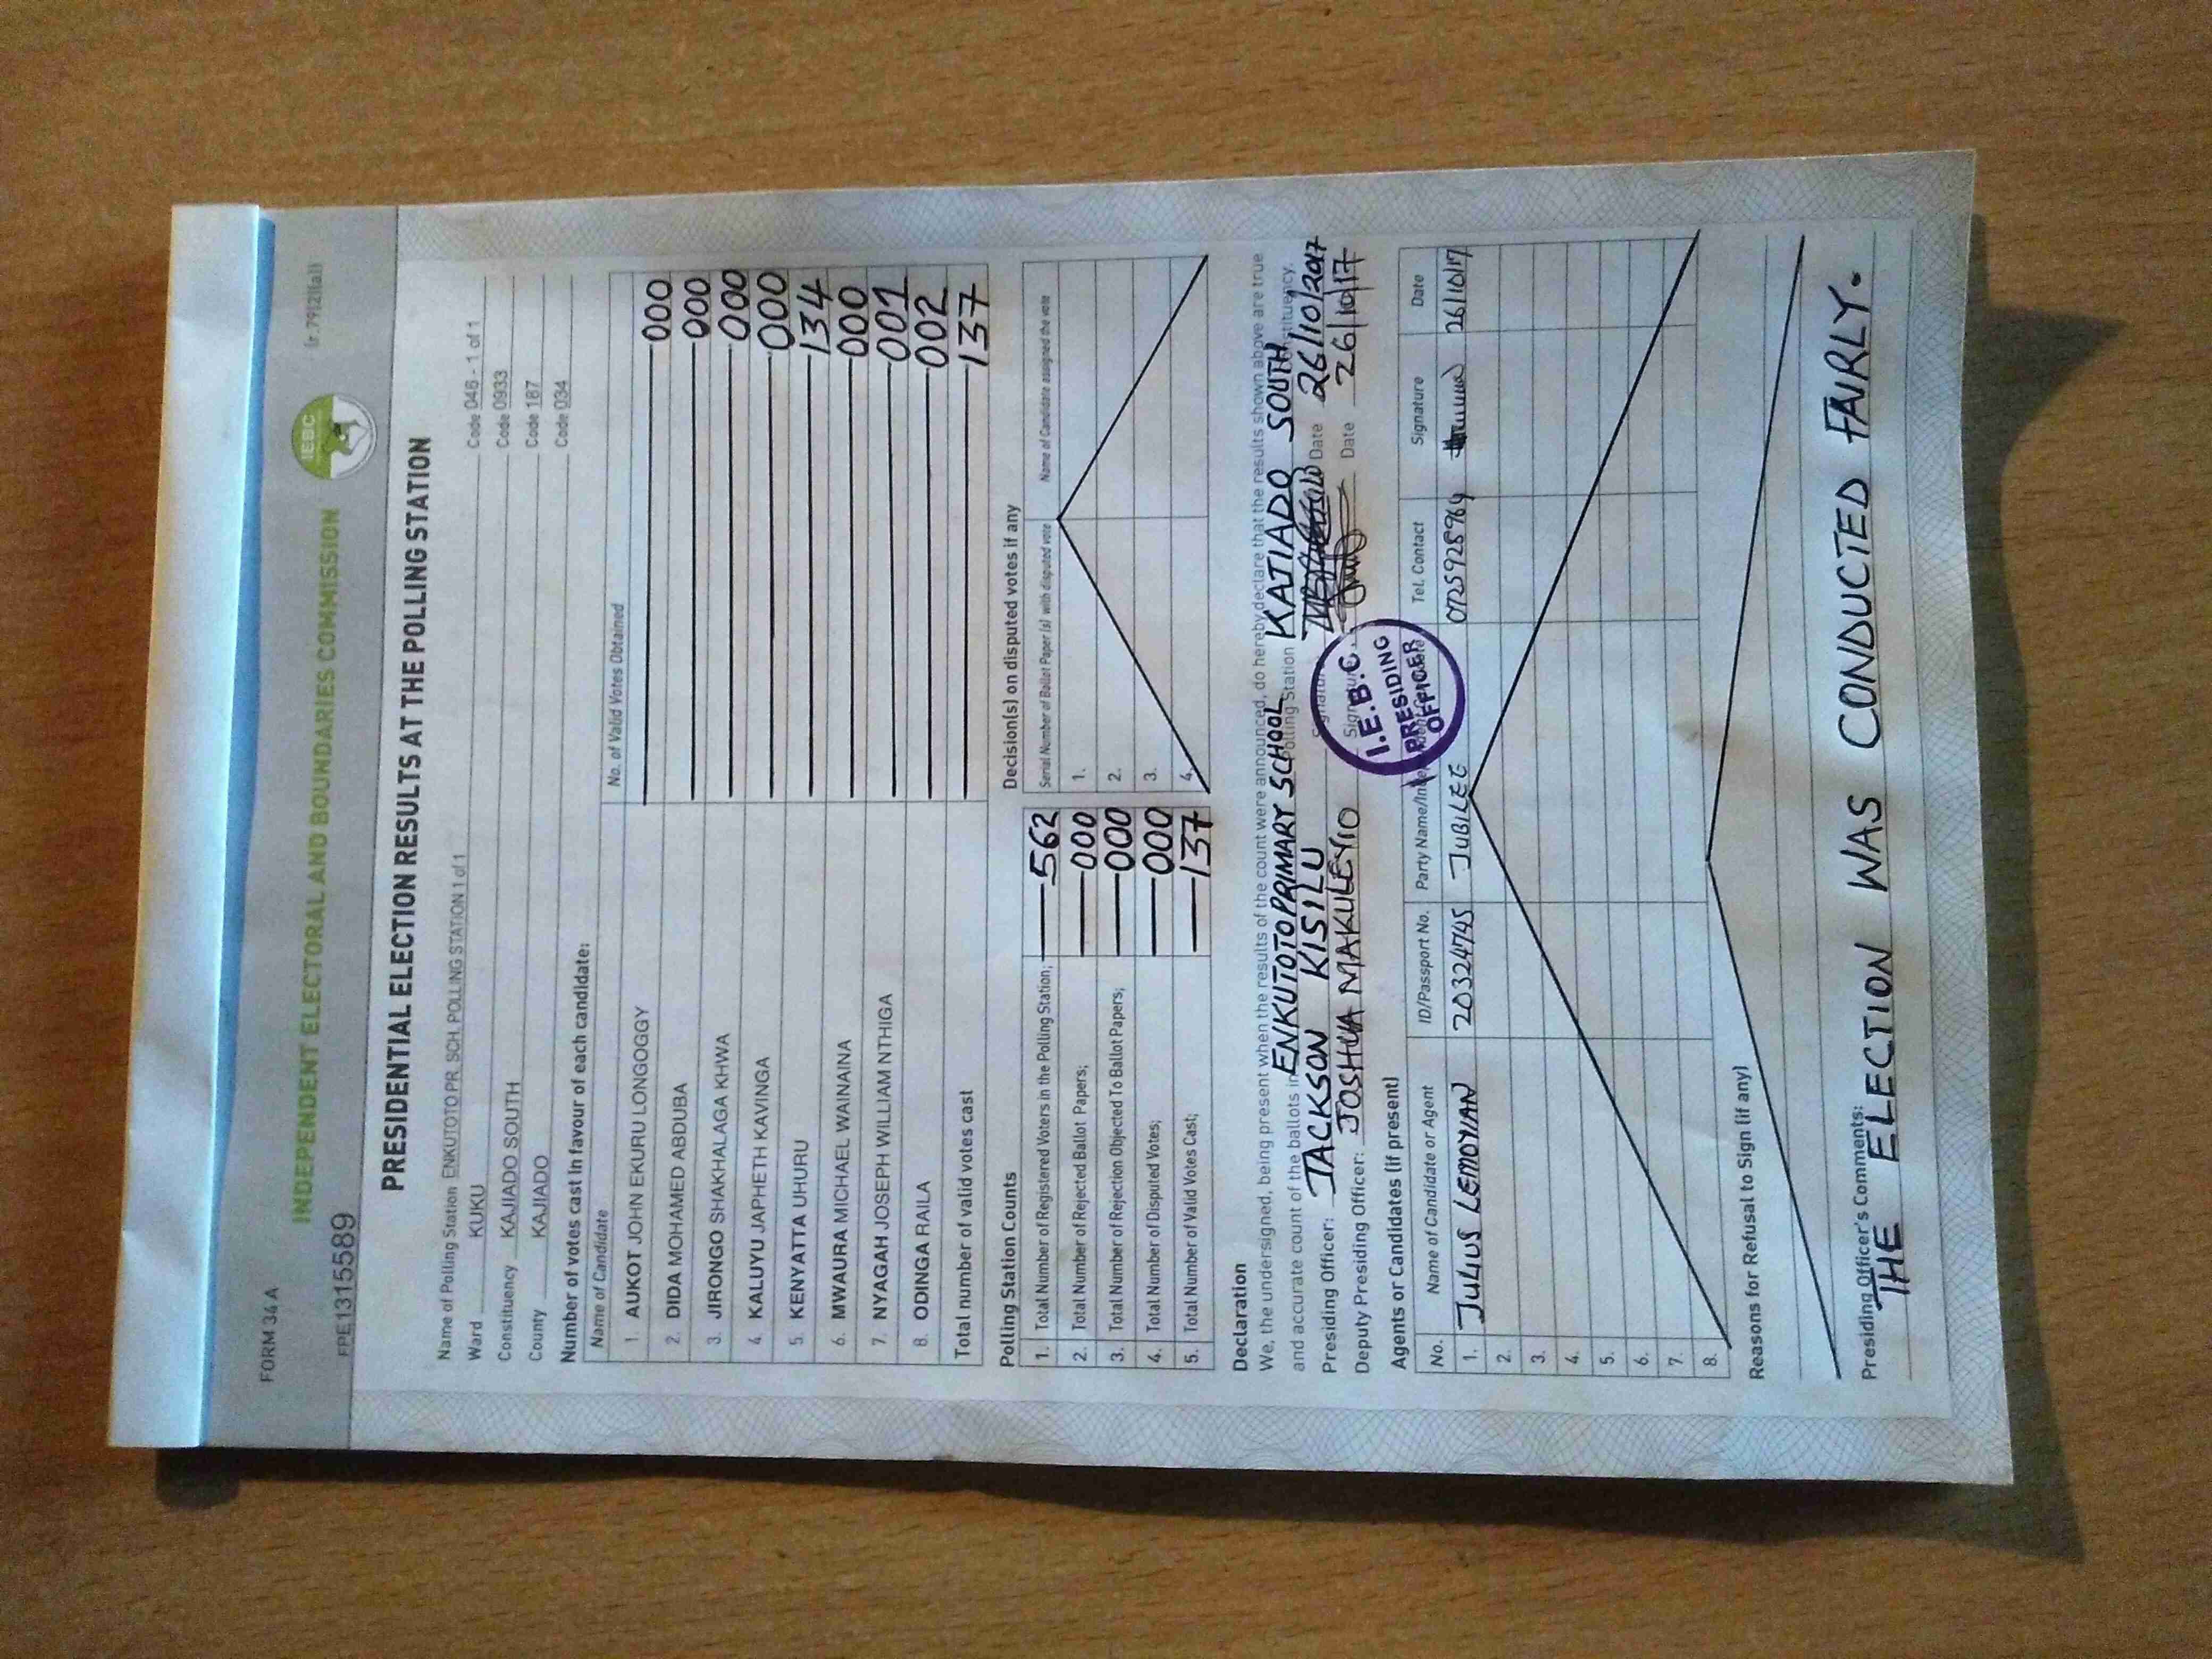 FORM 34 A
(r.79(2)(a))
INDEPENDENT ELECTORAL AND BOUNDARIES COMMISSION
IEBC
FPE1315589
PRESIDENTIAL ELECTION RESULTS AT THE POLLING STATION
Name of Polling Station ENKUTOTO PR. SCH. POLLING STATION 1 of 1 Code 046 - 1 of 1
Ward KUKU Code 0933
Constituency KAJIADO SOUTH Code 187
County KAJIADO Code 034
Number of votes cast in favour of each candidate:
Name of Candidate No. of Valid Votes Obtained
1. AUKOT JOHN EKURU LONGOGGY 000
2. DIDA MOHAMED ABDUBA 000
3. JIRONGO SHAKHALAGA KHWA 000
4. KALUYU JAPHETH KAVINGA 000
5. KENYATTA UHURU 134
6. MWAURA MICHAEL WAINAINA 000
7. NYAGAH JOSEPH WILLIAM NTHIGA 001
8. ODINGA RAILA 002
Total number of valid votes cast 137
Polling Station Counts
1. Total Number of Registered Voters in the Polling Station; 562
2. Total Number of Rejected Ballot Papers; 000
3. Total Number of Rejection Objected To Ballot Papers; 000
4. Total Number of Disputed Votes; 000
5. Total Number of Valid Votes Cast; 137
Decision(s) on disputed votes if any
Serial Number of Ballot Paper (s) with disputed vote Name of Candidate assigned the vote
1.
2.
3.
4.
Declaration
We, the undersigned, being present when the results of the count were announced, do hereby declare that the results shown above are true
and accurate count of the ballots in ENKUTOTO PRIMARY SCHOOL Polling Station KATIADO SOUTH Constituency.
Presiding Officer: JACKSON KISILU Signature Date 26/10/2017
Deputy Presiding Officer: JOSHUA MAKULEYIO Signature Date 26/10/17
I.E.B.C.
PRESIDING
OFFICER
Agents or Candidates (if present)
No. Name of Candidate or Agent ID/Passport No. Party Name/ Tel. Contact Signature Date
1. JULIUS LEMOYIAN 20324745 JUBILEE 0725928964 26/10/17
2.
3.
4.
5.
6.
7.
8.
Reasons for Refusal to Sign (if any)
Presiding Officer's Comments:
THE ELECTION WAS CONDUCTED FAIRLY.